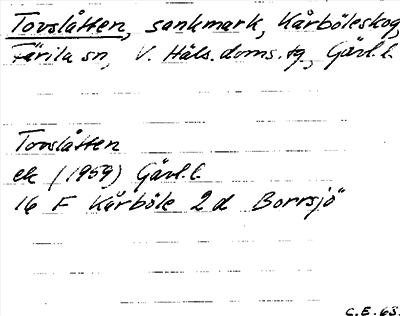 Tovslåtten, sankmark, Kårböleskog,
Färila sn, V. Häls. doms. tg., Gävl. l.
Tovslåtten
ek (1959) Gävl. l.
16 F Kårböle 2 d Borrsjö
C.E. 63.